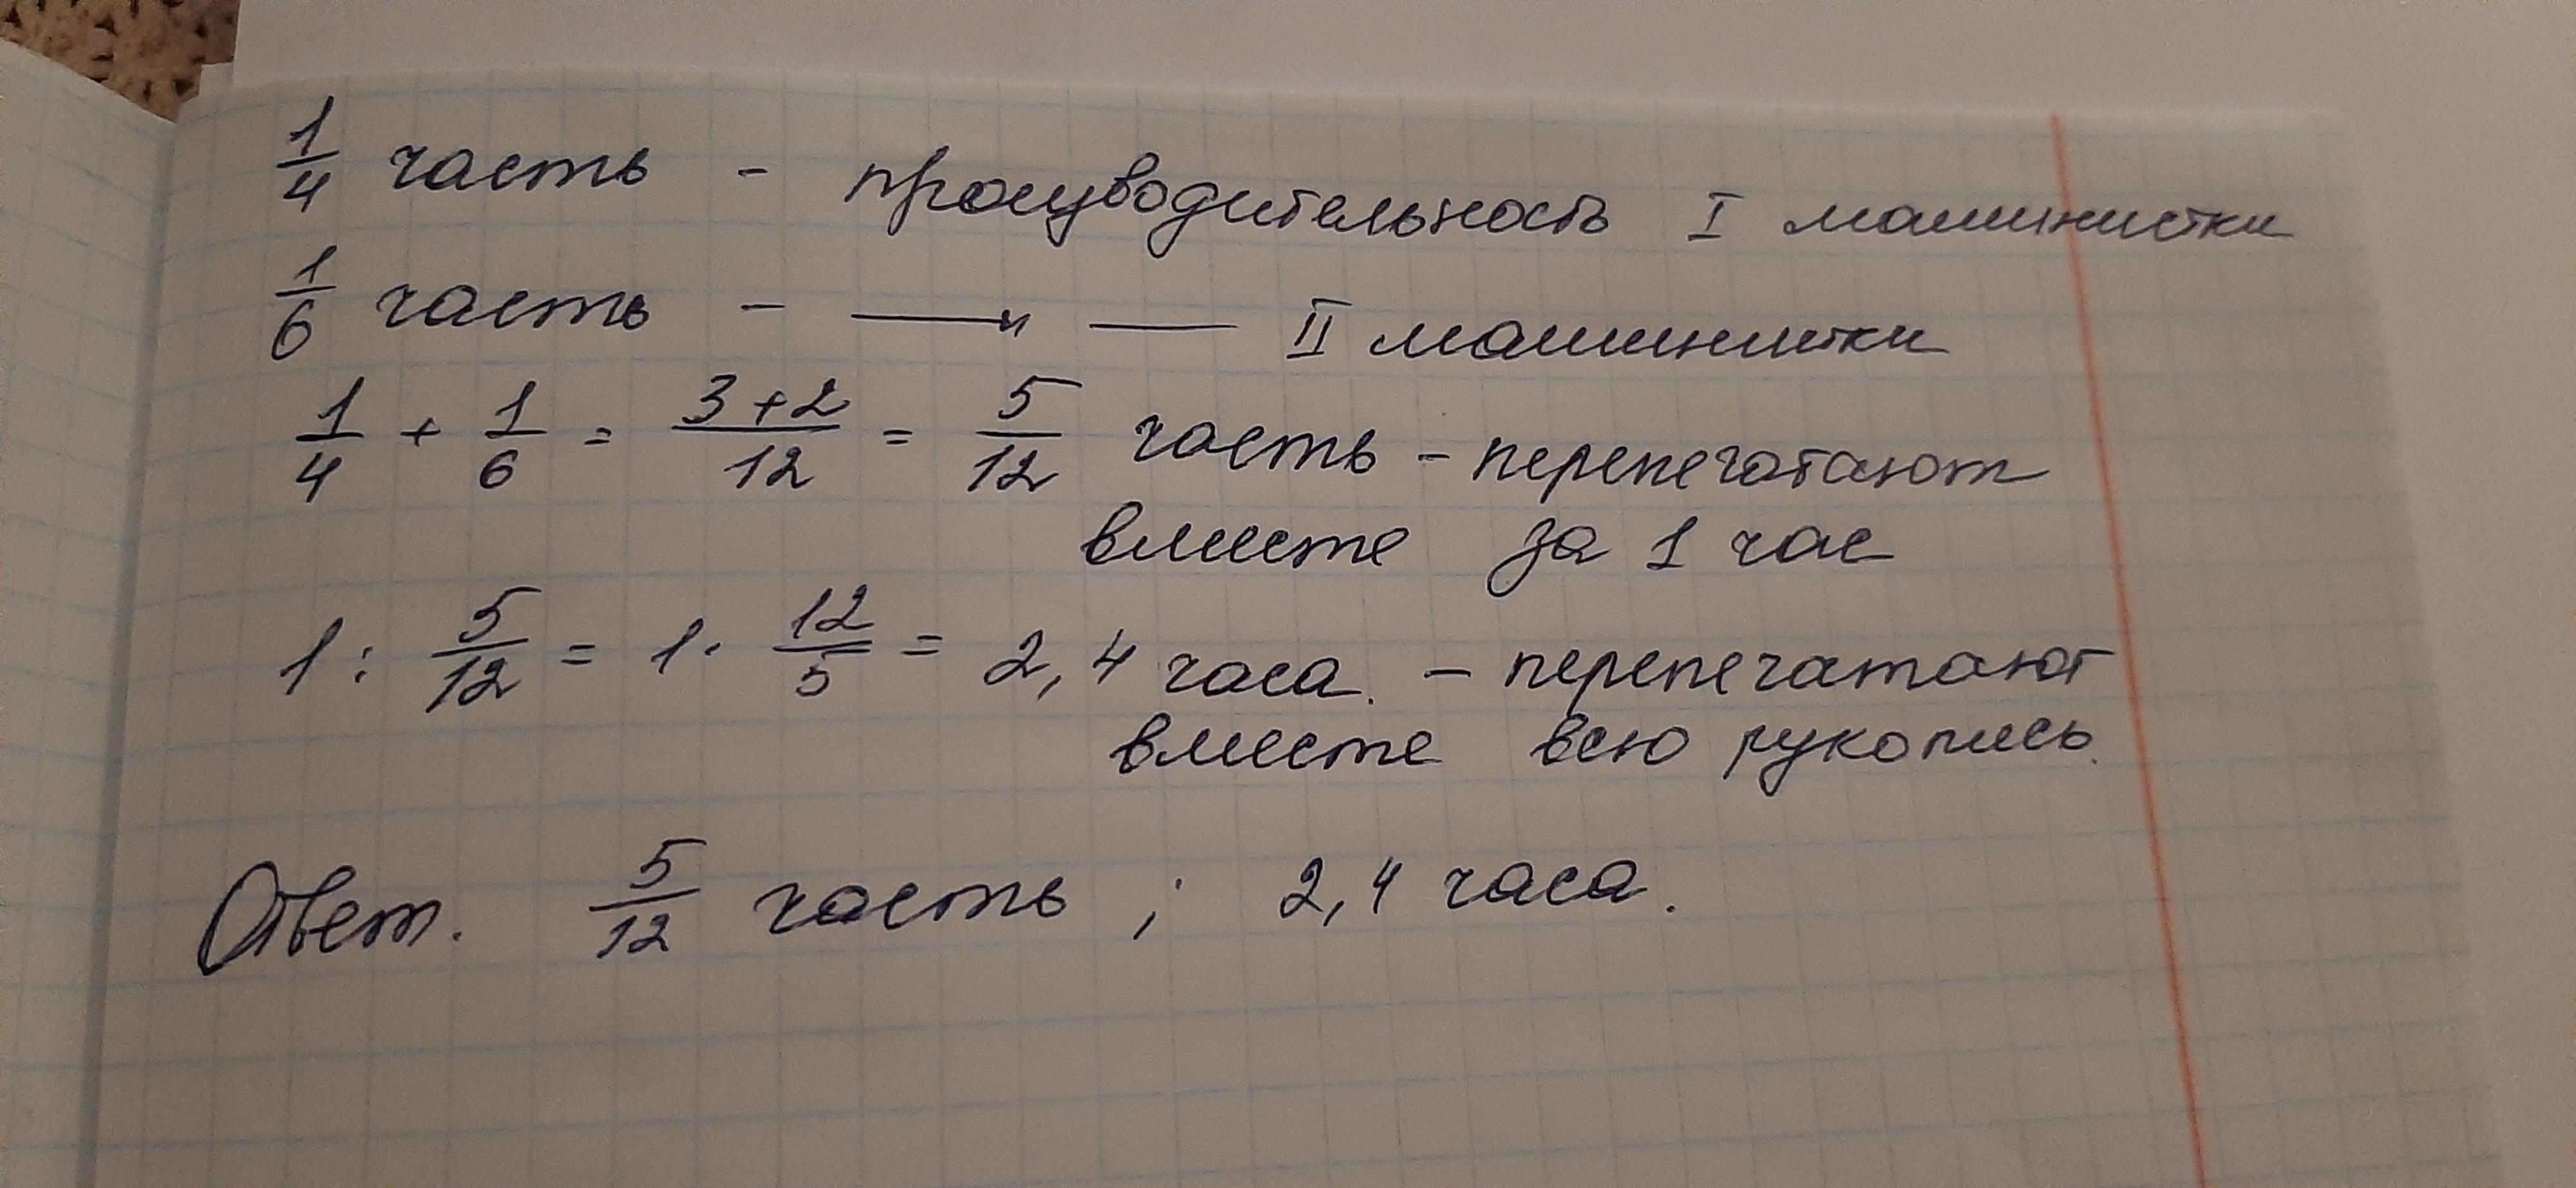 1/4 часть - производительность I машинистки
1/6 часть - —〃— II машинистки
1/4 + 1/6 = 3+2/12 = 5/12 часть - перепечатают
вместе за 1 час
1 : 5/12 = 1 · 12/5 = 2,4 часа. - перепечатают
вместе всю рукопись.
Ответ. 5/12 часть ; 2,4 часа.